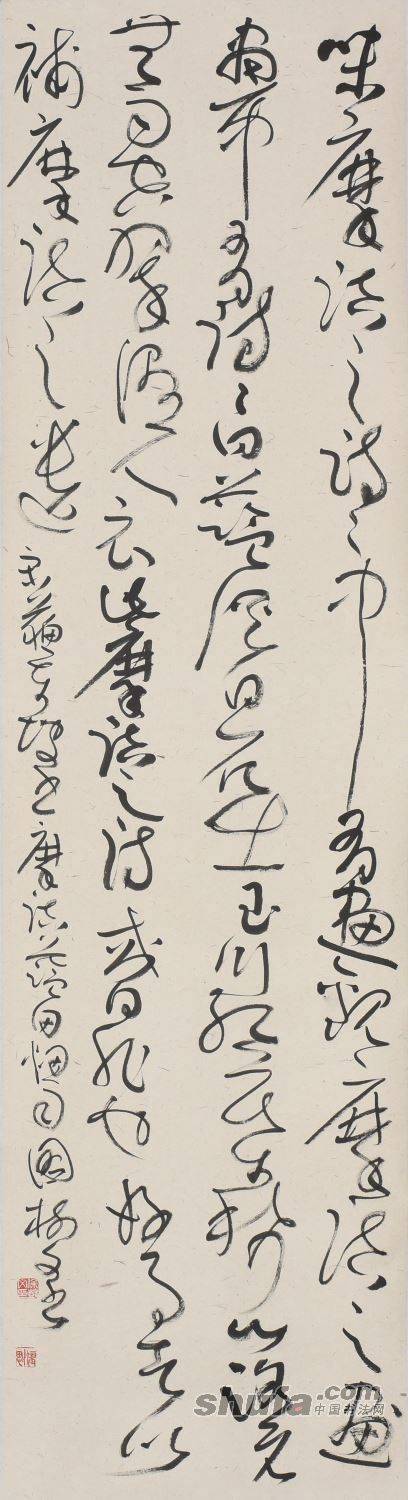 味摩詰之詩々中有畫觀摩詰之畫
畫中有詩々曰藍溪白石出玉川紅葉稀山路元
無雨空翠濕人衣此摩詰之詩或曰非也好事者以
補摩詰之遺
宋蘇東坡書摩詰藍田烟雨圖
shufa.com
中国书法网